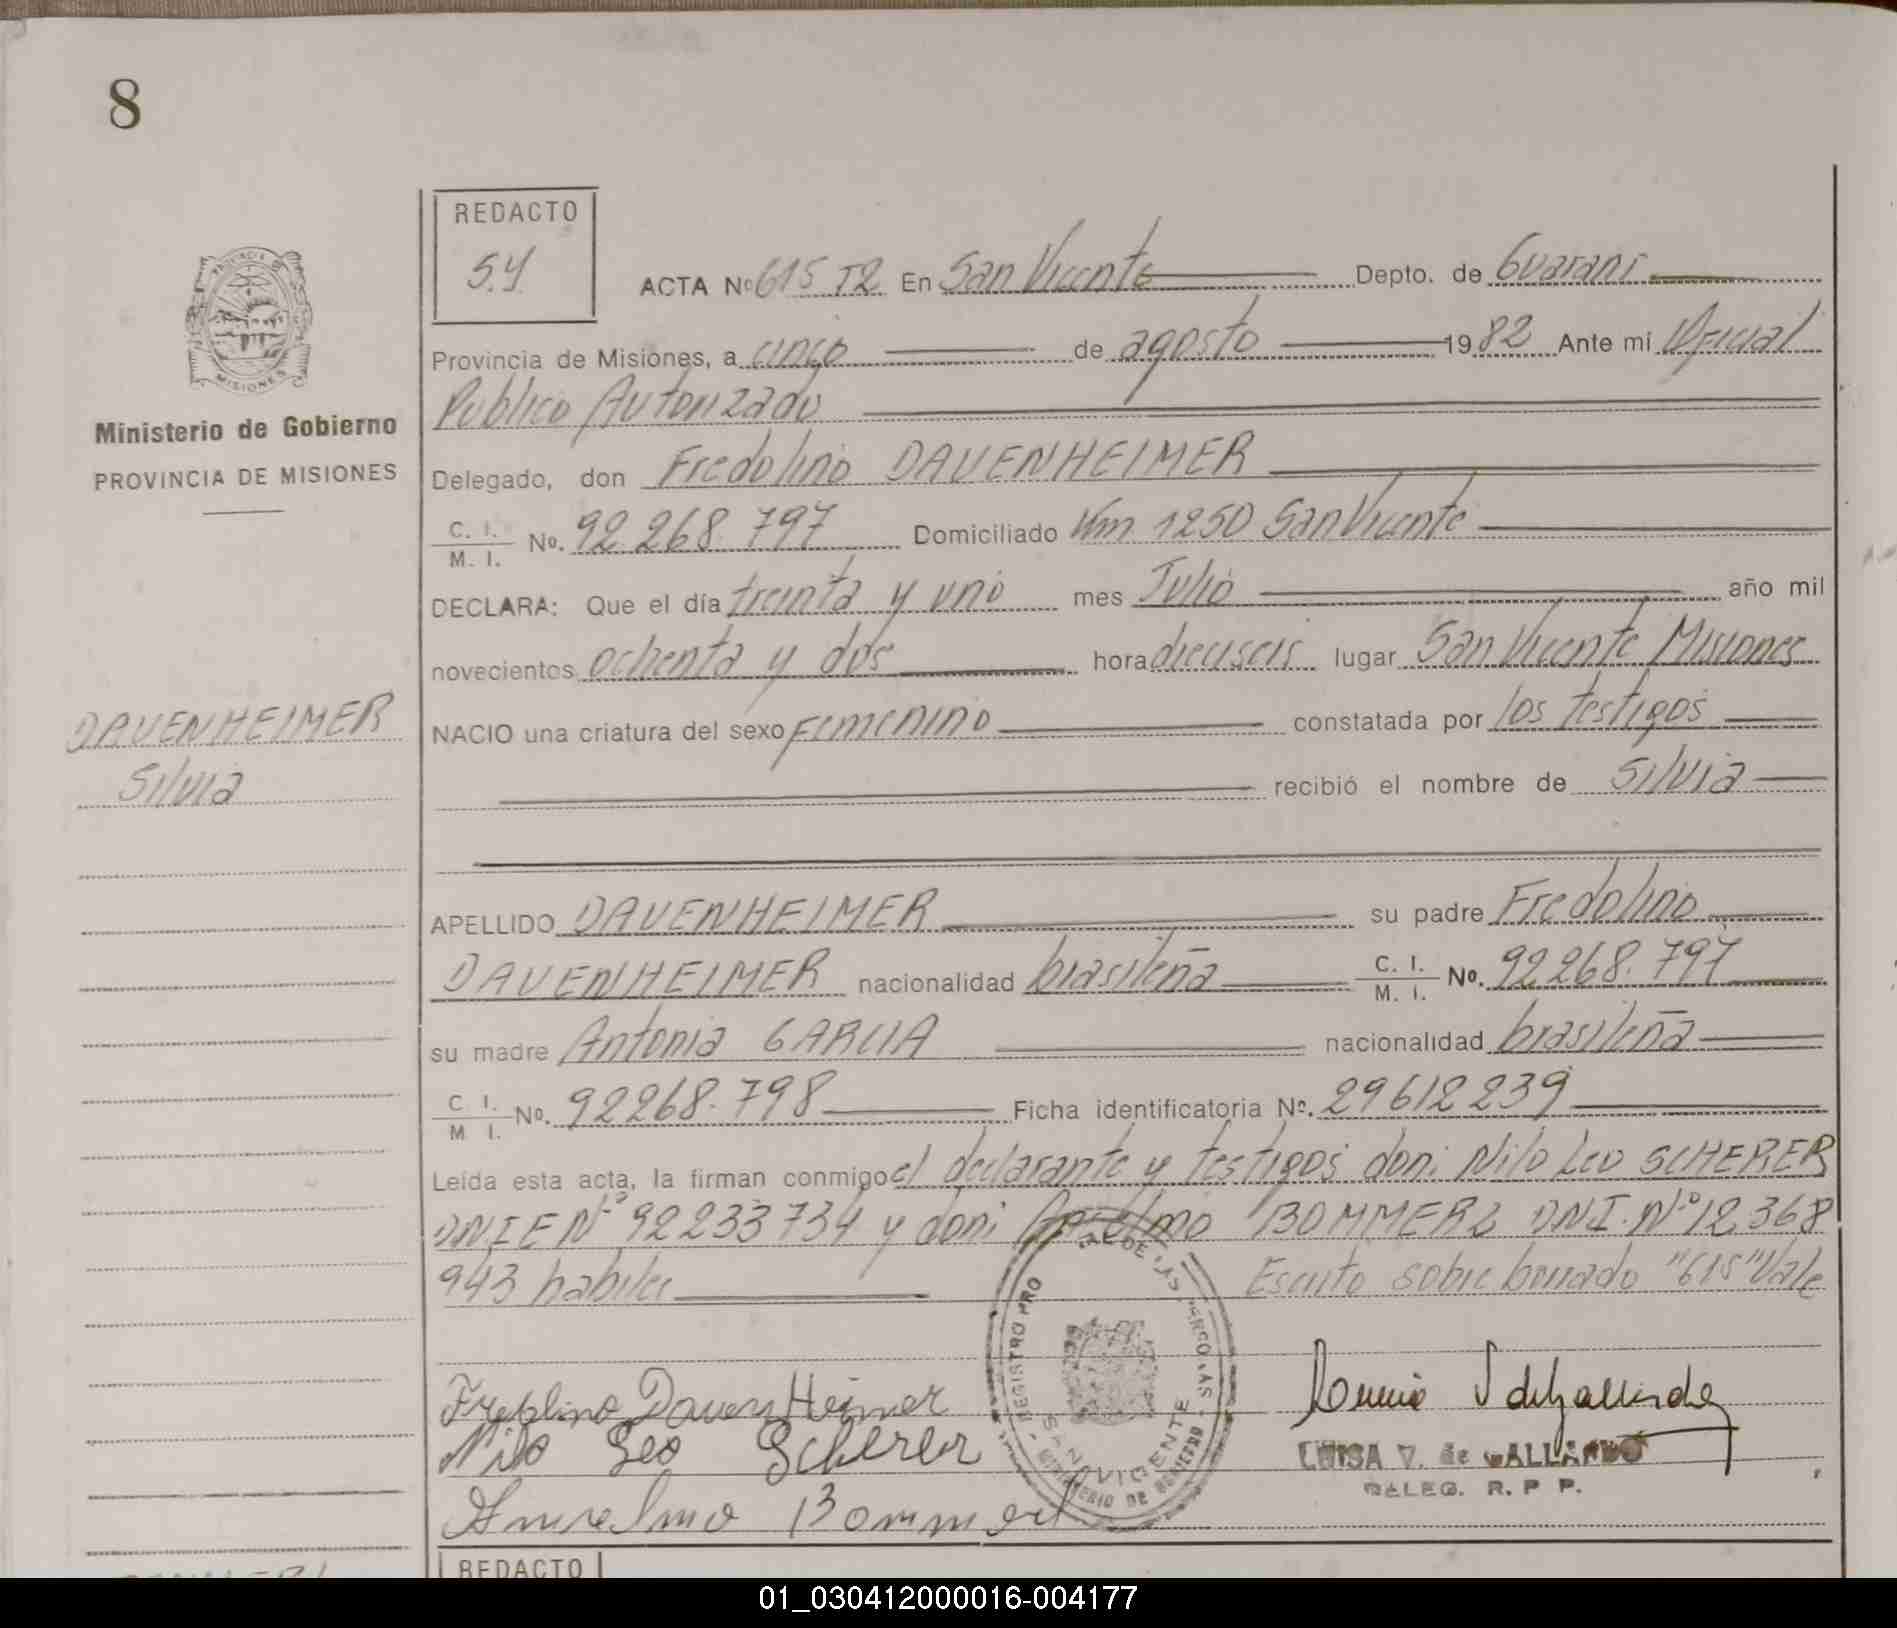 8
REDACTO
S.Y.
ACTA Nº 615 T2 En San Vicente Depto. de Guaraní
Provincia de Misiones, a cinco de agosto 1982 Ante mi Oficial
Publico Autorizado
Delegado, don Fredolino DAUENHEIMER
C. I. / M. I. No. 92 268.797 Domiciliado Km 1250 San Vicente
DECLARA: Que el día treinta y uno mes Julio año mil
novecientos ochenta y dos hora dieciseis lugar San Vicente Misiones
NACIO una criatura del sexo femenino constatada por los testigos
recibió el nombre de Silvia
APELLIDO DAUENHEIMER su padre Fredolino
DAUENHEIMER nacionalidad brasileña C. I. / M. I. No. 92268.797
su madre Antonia GARCIA nacionalidad brasileña
C. I. / M. I. No. 92268.798 Ficha identificatoria Nº. 29612239
Leída esta acta, la firman conmigo el declarante y testigos don: Nilo Leo SCHERER
DNIE Nº 92233734 y don: Anselmo BOMMERS DNI. Nº 12368
943 habiles Escrito sobre borrado "615" Vale
Ministerio de Gobierno
PROVINCIA DE MISIONES
DAUENHEIMER
Silvia
PROVINCIA DE
MISIONES
Dauen Heimer
Nilo Leo Scherer
Anselmo Bommer
REGISTRO PRO DE LAS PERSONAS
SAN VICENTE
MINISTERIO DE GOBIERNO
LUISA V. de GALLARDO
DELEG. R. P. P.
REDACTO
01_030412000016-004177